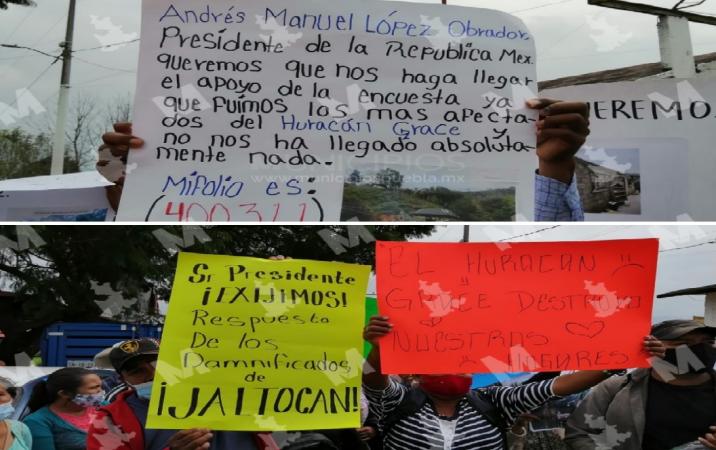 Andrés Manuel López Obrador.
Presidente de la Republica Mex.
queremos que nos haga llegar
el apoyo de la encuesta ya
que fuimos los mas afecta-
dos del Huracán Grace y
no nos ha llegado absoluta-
mente nada.
Mi folio es:
(400311)
UEREMO
www.municipiospuebla.mx
Sr Presidente
¡EXIJIMOS!
Respuesta
De los
Damnificados
de
¡JALTOCAN!
EL HURACAN
GRACE DESTROLLO
NUESTROS
HOGARES